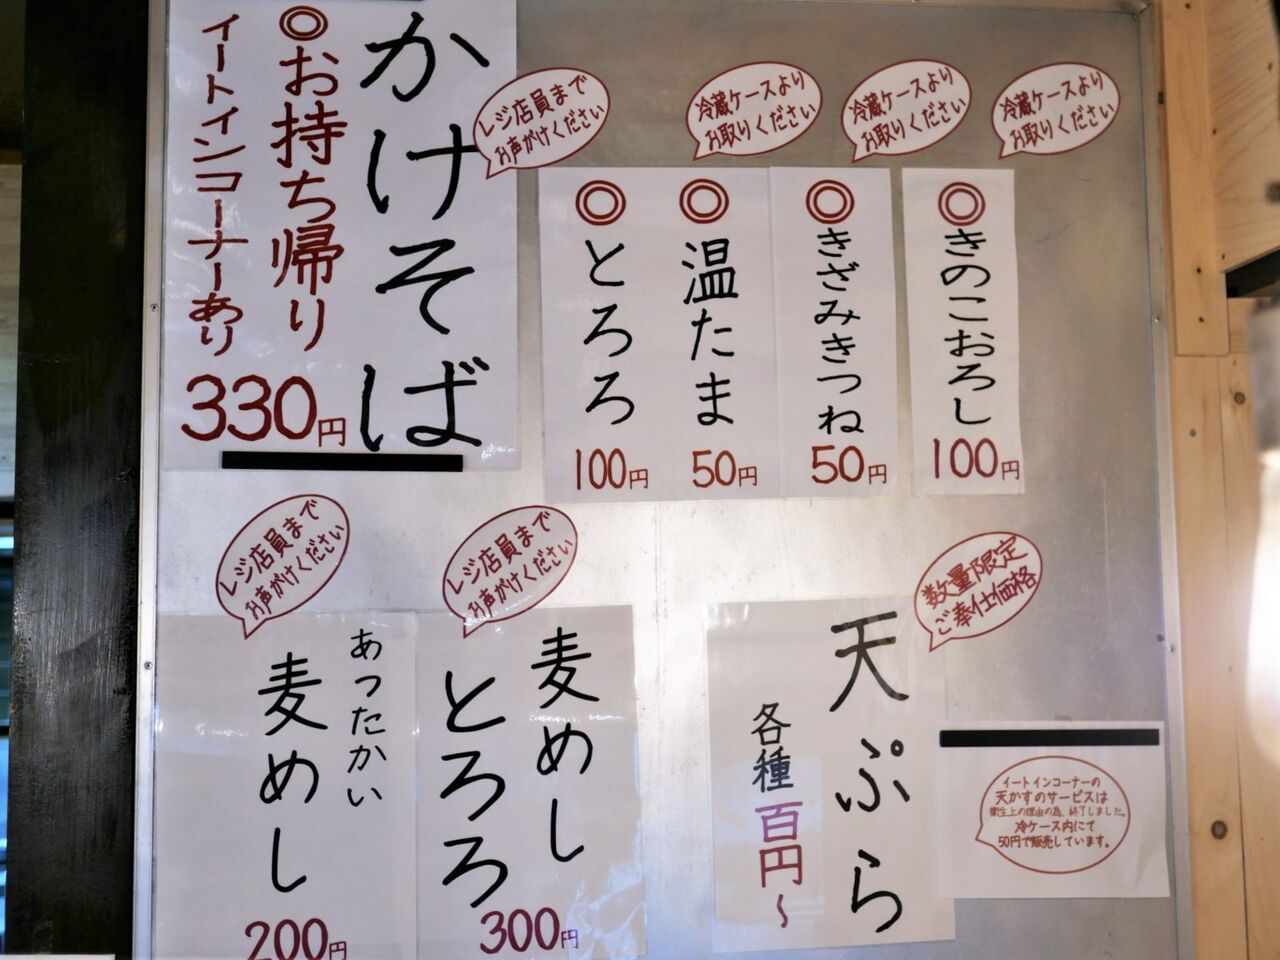 かけそば
◎お持ち帰り
イートインコーナーあり
330円
レジ店員まで
お声がけください
◎とろろ
100円
冷蔵ケースより
お取りください
◎温たま
50円
冷蔵ケースより
お取りください
◎きざみきつね
50円
冷蔵ケースより
お取りください
◎きのこおろし
100円
レジ店員まで
お声がけください
あったかい
麦めし
200円
レジ店員まで
お声がけください
麦めし
とろろ
300円
数量限定
ご奉仕価格
天ぷら
各種百円～
イートインコーナーの
天かすのサービスは
衛生上の理由の為、終了しました。
冷ケース内にて
50円で販売しています。